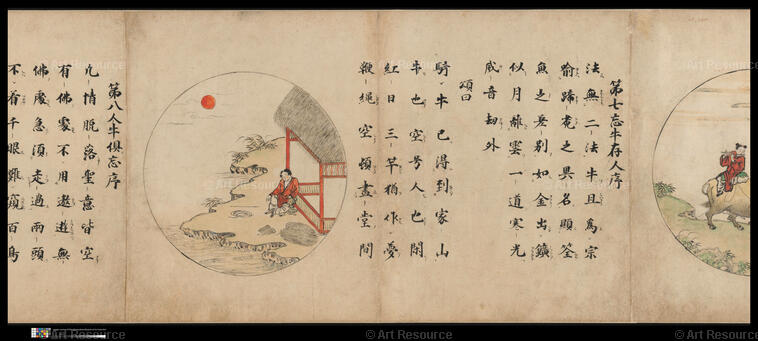 第七忘牛存人序
法無二法牛且爲宗
喻蹄兎之異名顯筌
魚之差別如金出鑛
似月離雲一道寒光
威音劫外
頌曰
騎牛已得到家山
牛也空兮人也閑
紅日三竿猶作夢
鞭繩空頓堂間
第八人牛俱忘序
凡情脱落聖意皆空
有佛處不用遨遊無
佛處急須走過兩頭
不着千眼難窺百鳥
© Art Resource
© Art Resource
© Art Resource
© Art Resource
© Art Resource
© Art Resource